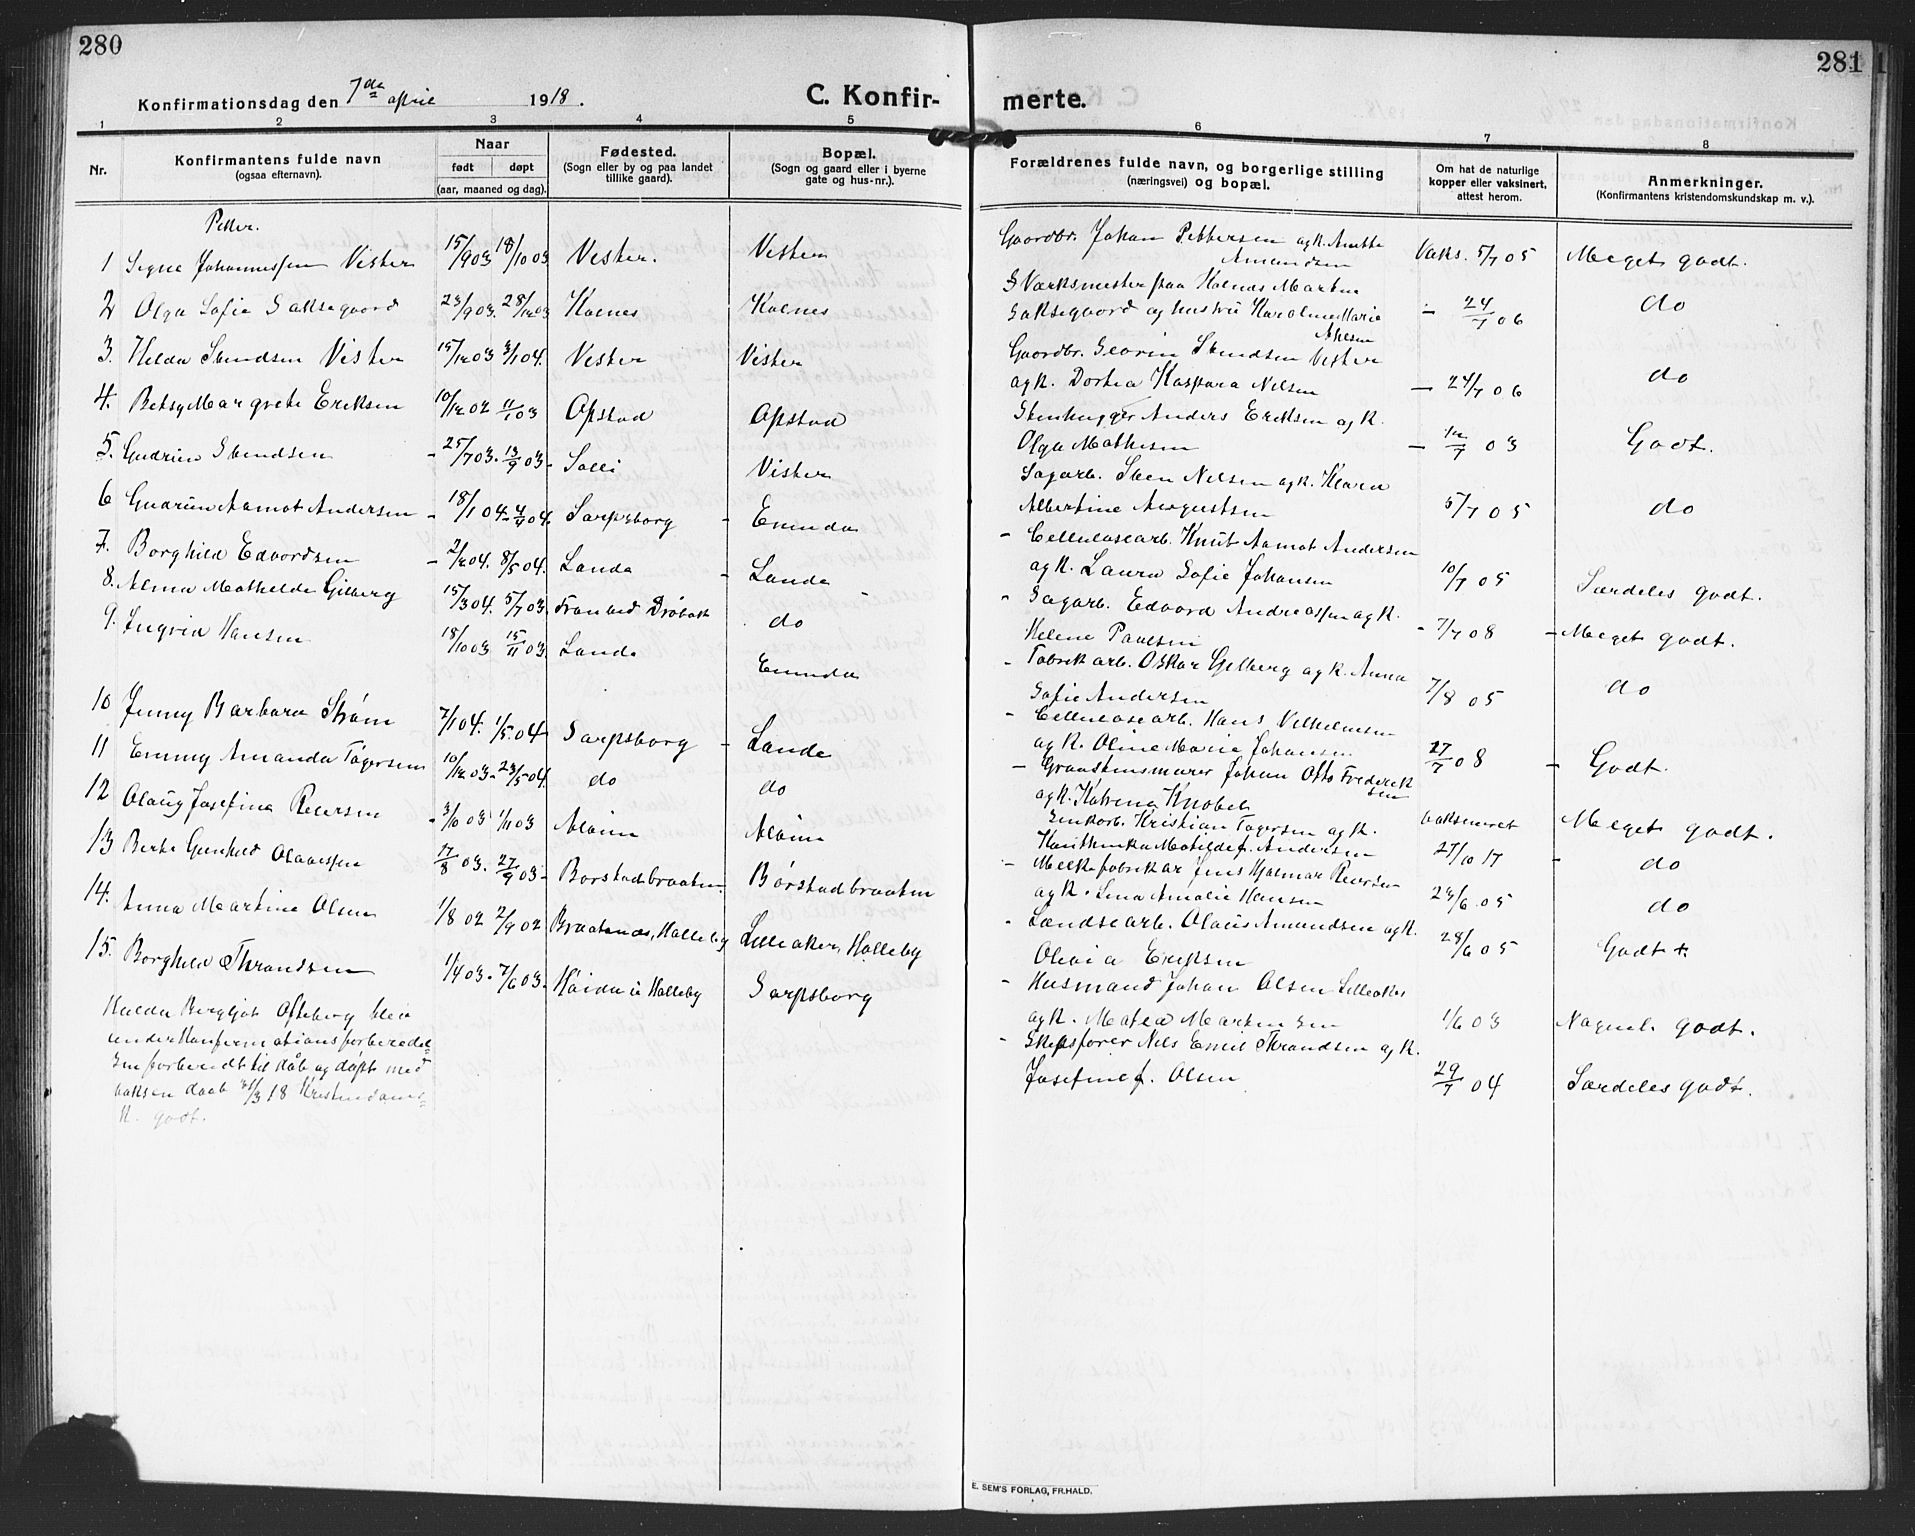 280
Konfirmationsdag den 7de april 1918.
C. Konfir-
1 2 3 4 5
Nr.
Konfirmantens fulde navn
(ogsaa efternavn).
Naar
født døpt
(aar, maaned og dag).
Fødested.
(Sogn eller by og paa landet
tillike gaard).
Bopæl.
(Sogn og gaard eller i byerne
gate og hus-nr.).
Piker.
1 Signe Johannessen Vister 15/9 03 18/10 03 Vister. Vister
2 Olga Sofie Saksegaard 23/9 03. 28/12 03 Kalnes Kalnes
3. Hilda Svendsen Vister 15/12 03 3/1 04. Vister Vister
4. Betsy Margrete Eriksen 10/12 02 11/1 03 Opstad Opstad
5. Gudrun Svendsen - 25/7 03. 13/9 03 - Solli Vister
6 Gudrun Aamot Andersen - 18/1 04 - 4/4 04. Sarpsborg - Enenda
7. Borghild Edvardsen - 2/12 04. 8/5 04. Lande - Lande
8. Alma Mathilde Gilberg 15/3 04. 5/7 03. Frankrd Drøbak do
9. Ingrid Hansen 18/10 03 15/11 03. Lande Enenda
10 Jenny Barbara Strøm 7/1 04. 1/5 04 Sarpsborg - Lande
11 Emmy Amanda Tøgersen 10/12 03 - 23/5 04. do do
12 Olaug Josefine Reiersen - 3/10 03 1/11 03 Alvim Alvim
13 Berte Gunhild Olaussen 17/8 03. 27/9 03 - Borstadbraaten Børstadbraaten
14. Anna Martine Olsen 1/8 02 2/9 02 Braatenes, Halleby Lilleaker, Halleby
15. Borghild Thrandsen 1/4 03. 7/6 03. Høida i Halleby Sarpsborg
Hulda Bergljot Opteberg blev
under konfirmationsforberedel-
sen forberedt til dåb og døpt med
voksen daab 31/3 18 Kristendoms-
k. godt.
281
merte.
6 7 8
Forældrenes fulde navn, og borgerlige stilling
(næringsvei) og bopæl.
Om hat de naturlige
kopper eller vaksinert,
attest herom.
Anmerkninger.
(Konfirmantens kristendomskundskap m. v.).
Gaardbr. Johan Pettersen og k. Anette
Amundsen Vaks. 5/7 05 Meget godt.
Værksmester paa Kalnes Martin
Saksegaard og hustru Karoline Marie - 24/7 06 do
Gaardbr. Georin Svendsen Vister
og k. Dortea Kaspara Nilsen - 24/7 06 do
Stenhugger Anders Eriksen og k.
Olga Mathisen - 12/7 03 Godt.
Sagarb. Sven Nilsen og k. Klara
Albertine Augustsen 5/7 05 do
- Cellulosearb. Knut Aamot Andersen
og k. Laura Sofie Johansen 10/7 05 Særdeles godt.
- Sagarb. Edvard Andreassen og k.
Helene Paulsen - 7/7 08 - Meget godt.
- Fabrikarb. Oskar Gilberg og k. Anna
Sofie Andersen 7/8 05 do
- Cellulosearb. Hans Vilhelmsen
og k. Oline Marie Johansen 27/7 08 - Godt.
- Graastensmurer Johan Otto Frederik
sen
og k. Katrine Knobel vaksineret Meget godt.
Kristian Tøgersen og k.
Matilde f. Andersen 27/10 17 - do
- Melkefabrikar Jens Hjalmar Reiersen
og k. Lina Amalie Hansen 23/6 05 do
- Landsearb. Olaus Amundsen og k.
Olivia Eriksen 28/6 05 Godt +.
- Husmand Johan Olsen Lilleaker
og k. Matea Martinsen 1/6 03 Nogenl. godt.
- Skipsfører Nils Emil Thrandsen og k.
Josefine f. Olsen 29/7 04 Særdeles godt.
E. SEM'S FORLAG, FR.HALD.